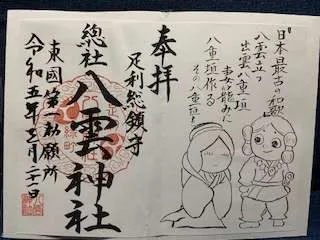 日本最古の和歌
八雲立つ
出雲八重垣
妻籠みに
八重垣作る
その八重垣を
奉拝
足利總鎮守
總社 八雲神社
東國第一祈願所
令和五年三月二十一日